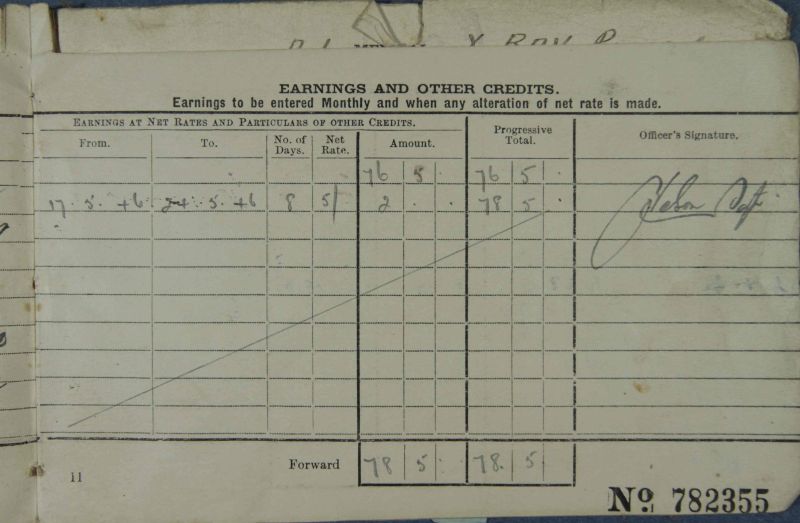 X RAY
EARNINGS AND OTHER CREDITS.
Earnings to be entered Monthly and when any alteration of net rate is made.
EARNINGS AT NET RATES AND PARTICULARS OF OTHER CREDITS.
From. To. No. of Days. Net Rate. Amount. Progressive Total. Officer's Signature.
76 5 . 76 5 .
17 . 5 . 46 24 . 5 . 46 8 5/ 2 . . 78 5 .
Forward 78 5 . 78. 5
11
No. 782355